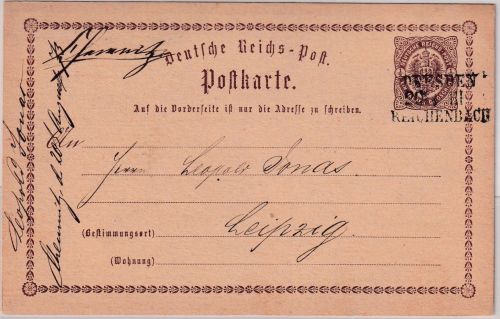 Chemnitz
Deutsche Reichs-Post.
Postkarte.
Auf die Vorderseite ist nur die Adresse zu schreiben.
DRESDEN
REICHENBACH
An
Herrn Leopold Jonas
Leipzig.
(Bestimmungsort)
(Wohnung)
Leopold Jonas
Chemnitz d.